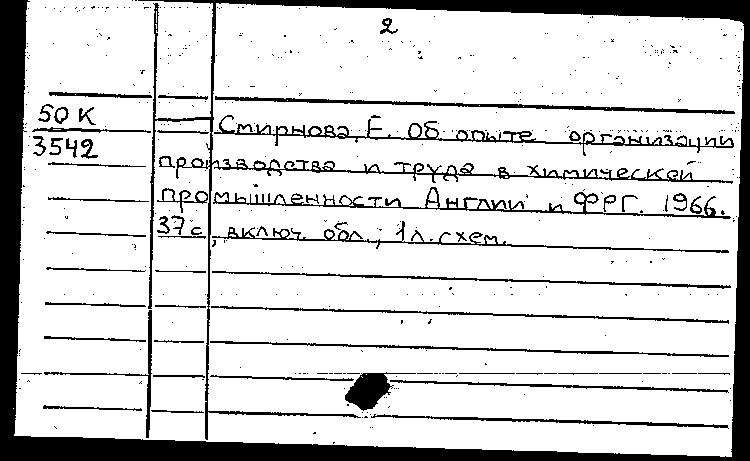 2
50 К
3542
— Смирнова, Е. Об опыте организации
производства и труда в химической
промышленности Англии и ФРГ. 1966.
37 с, включ. обл.; 1 л. схем.